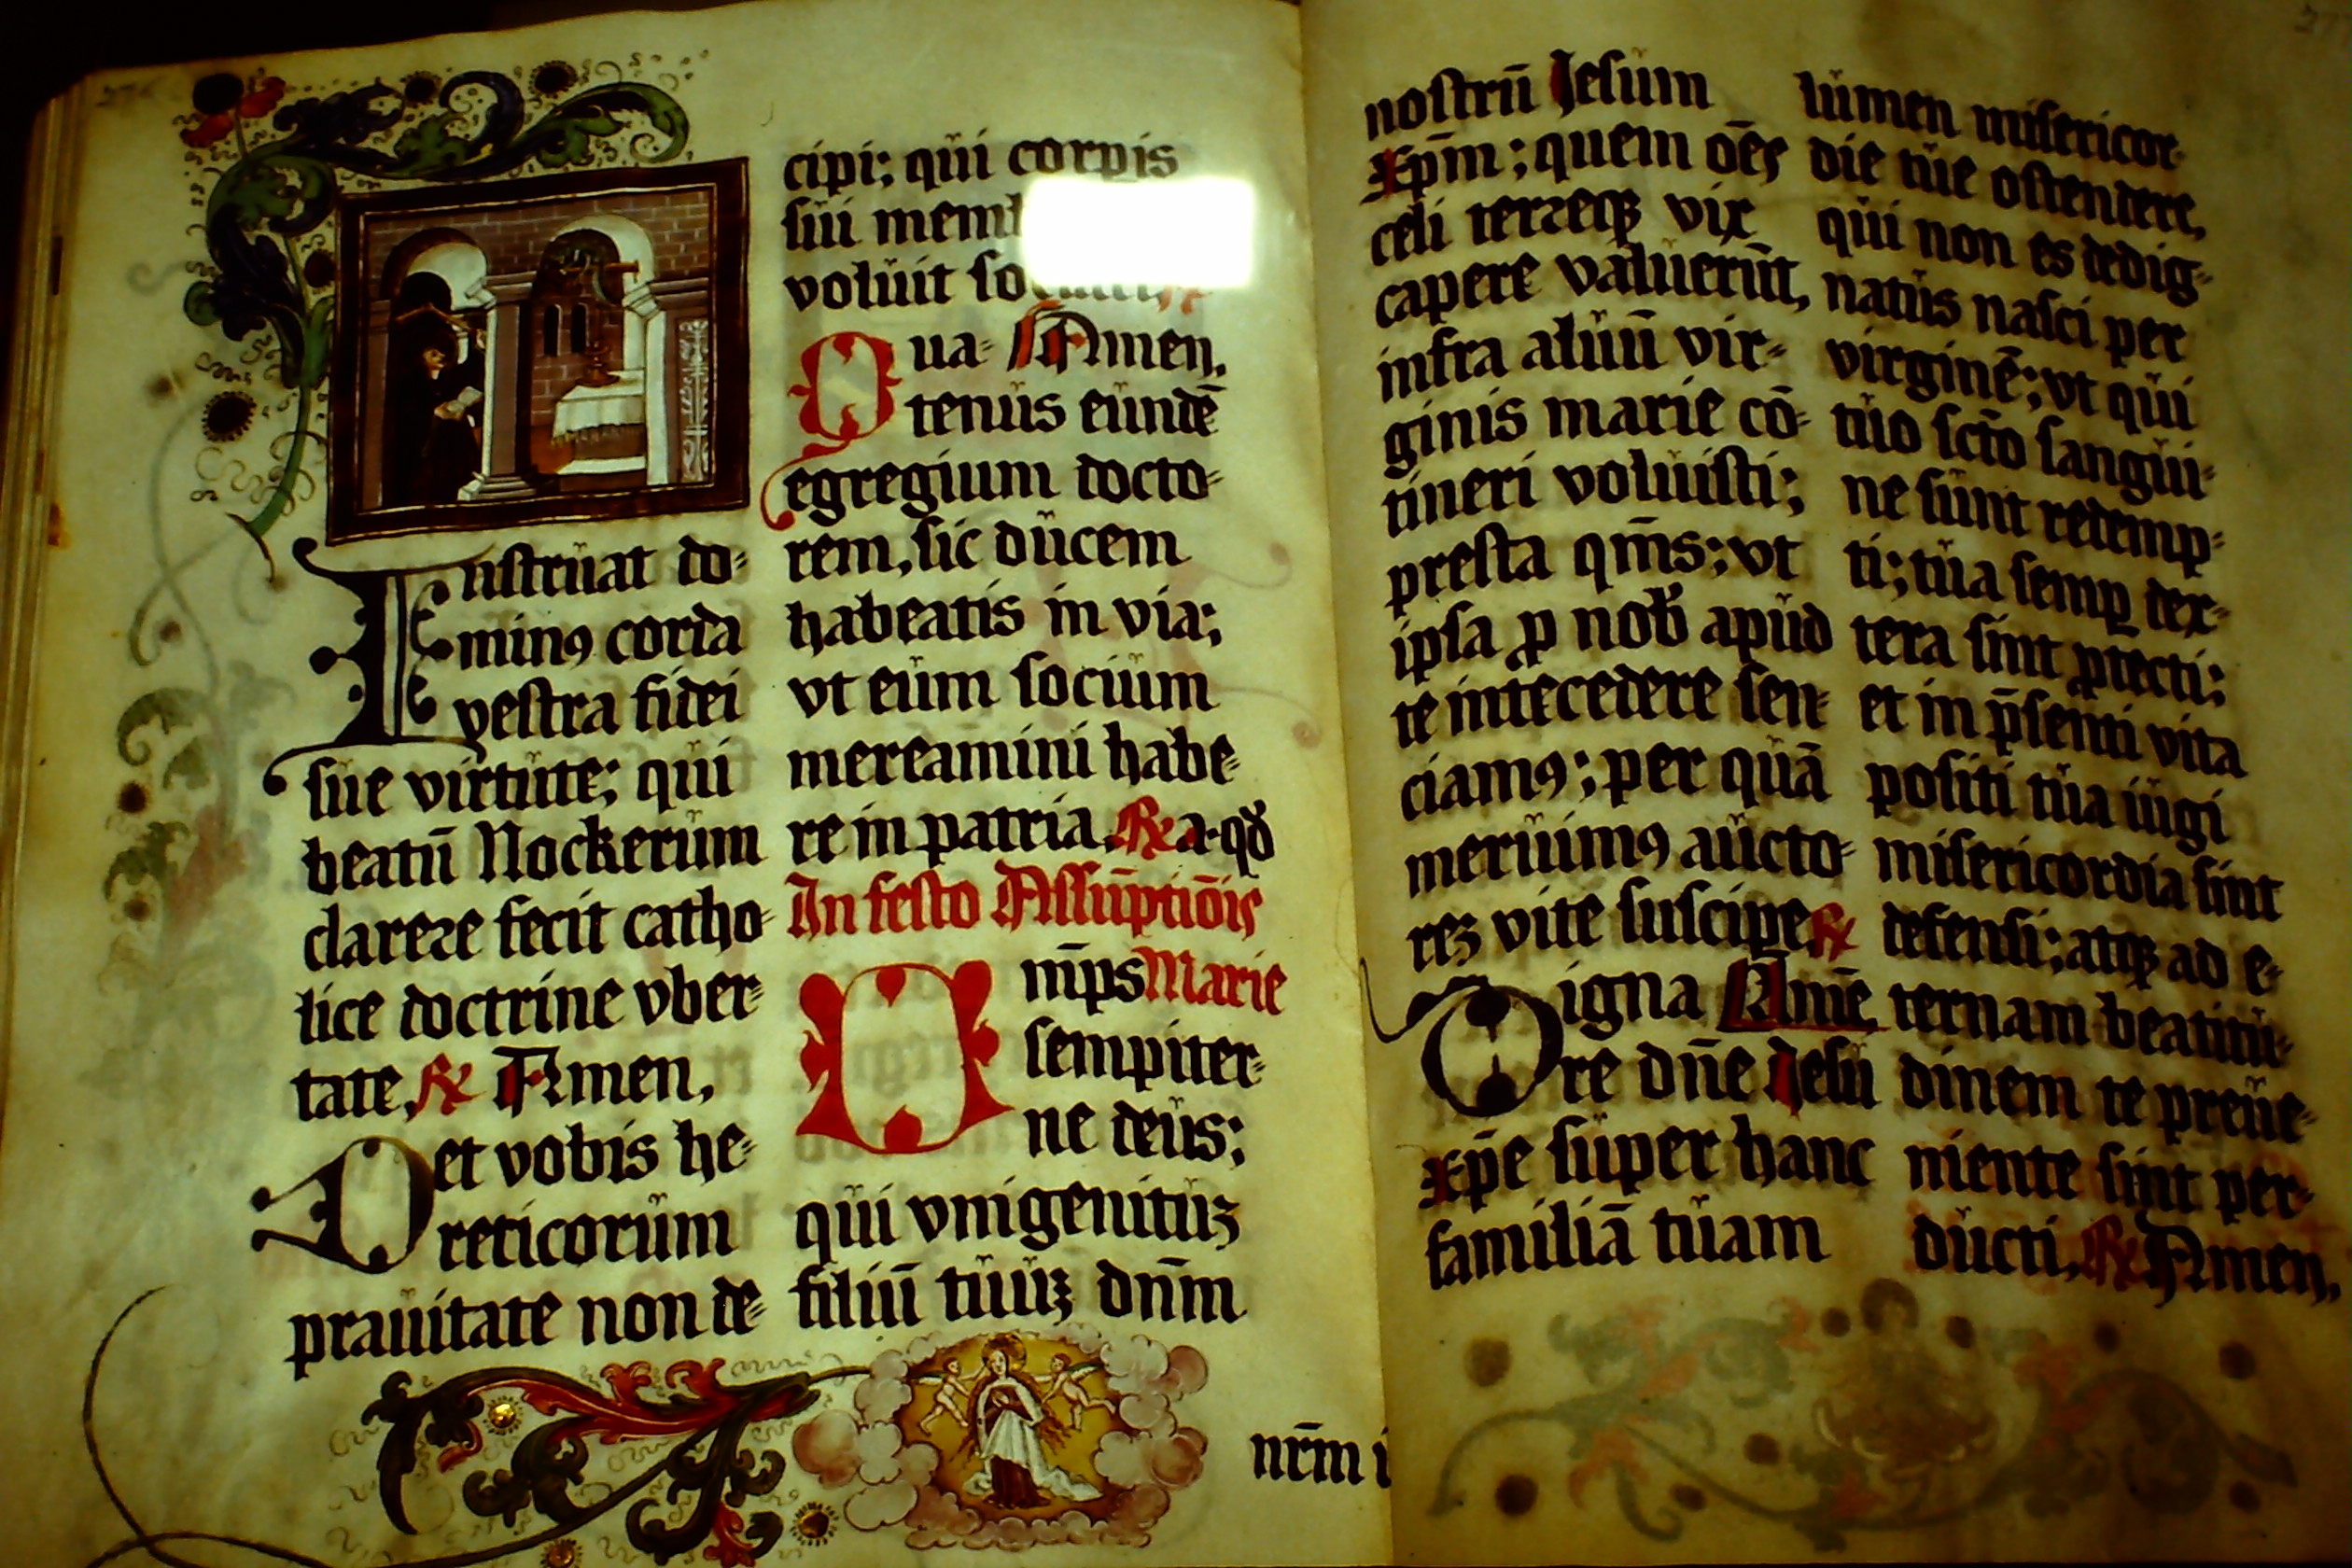 Instrüat do-
minꝯ corda
vestra fidei
süe virtüte; qüi
beatū Nockerüm
clareꝛe fecit catho-
lice doctrine vber-
tate, ℟ Amen,
Det vobis he-
reticorüm
praüitate non de-
cipi; qüi corpis
süi
volüit
ua- Amen,
Qtenüs eündē
egregium docto-
rem, sic dücem
habeatis in via;
vt eüm sociüm
mereamini habe-
re in patria, ℟ a. qđ
In festo Assūptiōis
Om̄ps Marie
sempiter-
ne deüs;
qüi vnigenitüʒ
filiū tüüʒ dn̄m
nr̄m i
nostrū Jesüm
xp̄m; quem oēs
celi terꝛeqꝫ vix
capere valüerūt,
infra alüū vir-
ginis marie cō-
tineri volüisti;
presta qm̄s; vt
ipsa ꝓ nob̄ apüd
te int̄ecedere sen-
ciamꝯ; per qüā
merüimꝯ aücto-
reʒ vite suscipe, ℟
igna Amē
Ore dn̄e Jesü
xp̄e süper hanc
familiā tüam
lümen misericor-
die tüe ostendere,
qüi non es dedig-
natüs nasci per
virginē; vt qüi
tüo sct̄o sangüi-
ne sünt redemp-
ti; tüa semꝑ dex-
tera sint ꝓtecti;
et in p̄senti vita
positi tüa iügi
misericordia sint
defensi; atqꝫ ad e-
ternam beatitü-
dinem te preüe-
niente sint per-
dücti, ℟ Amen,